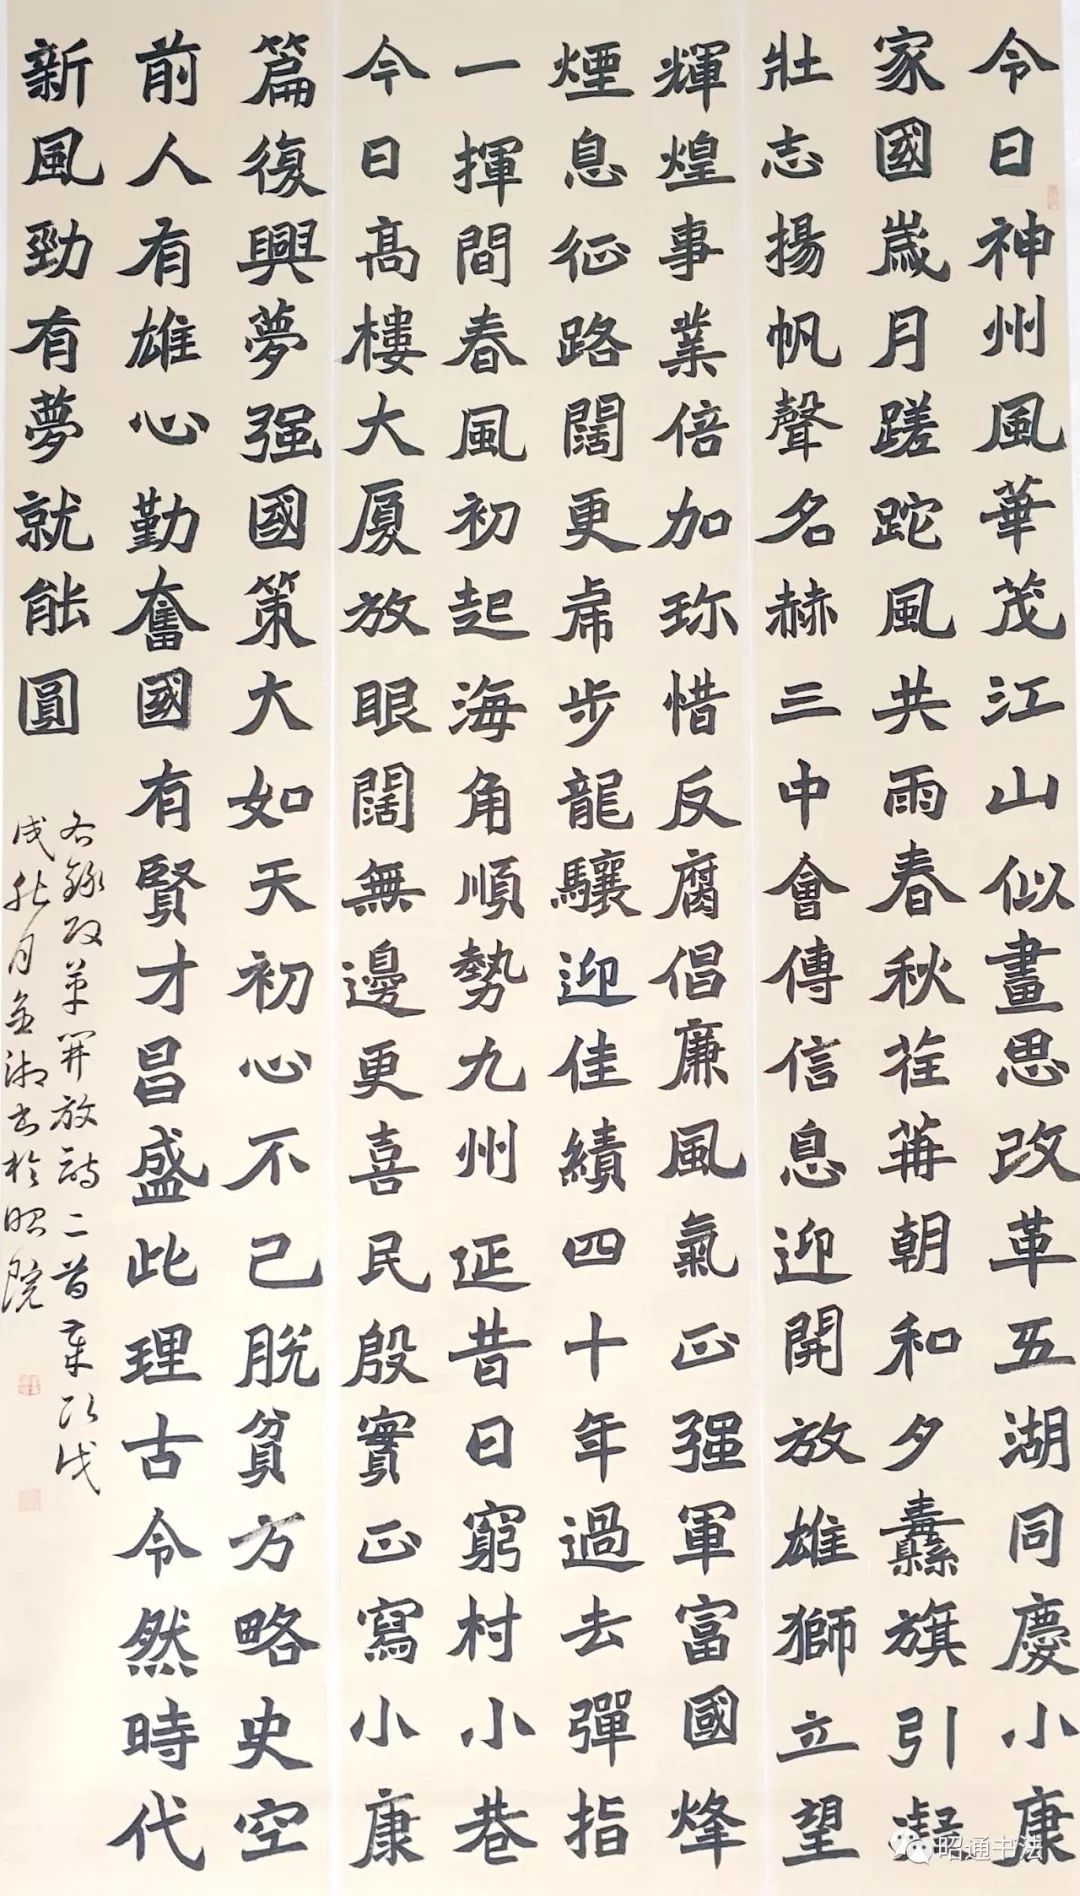 今日神州風華茂江山似畫思改革五湖同慶小康
家國歲月蹉跎風共雨春秋荏苒朝和夕纛旗引凝
壯志揚帆聲名赫三中會傳信息迎開放雄獅立望
輝煌事業倍加珍惜反腐倡廉風氣正强軍富國烽
煙息征路闊更虎步龍驤迎佳績四十年過去彈指
一揮間春風初起海角順勢九州延昔日窮村小巷
今日高樓大厦放眼闊無邊更喜民殷實正寫小康
篇復興夢强國策大如天初心不已脱貧方略史空
前人有雄心勤奮國有賢才昌盛此理古今然時代
新風勁有夢就能圓
右錄改革開放詩二首歲次戊
戌秋月書於昭院
昭通书法